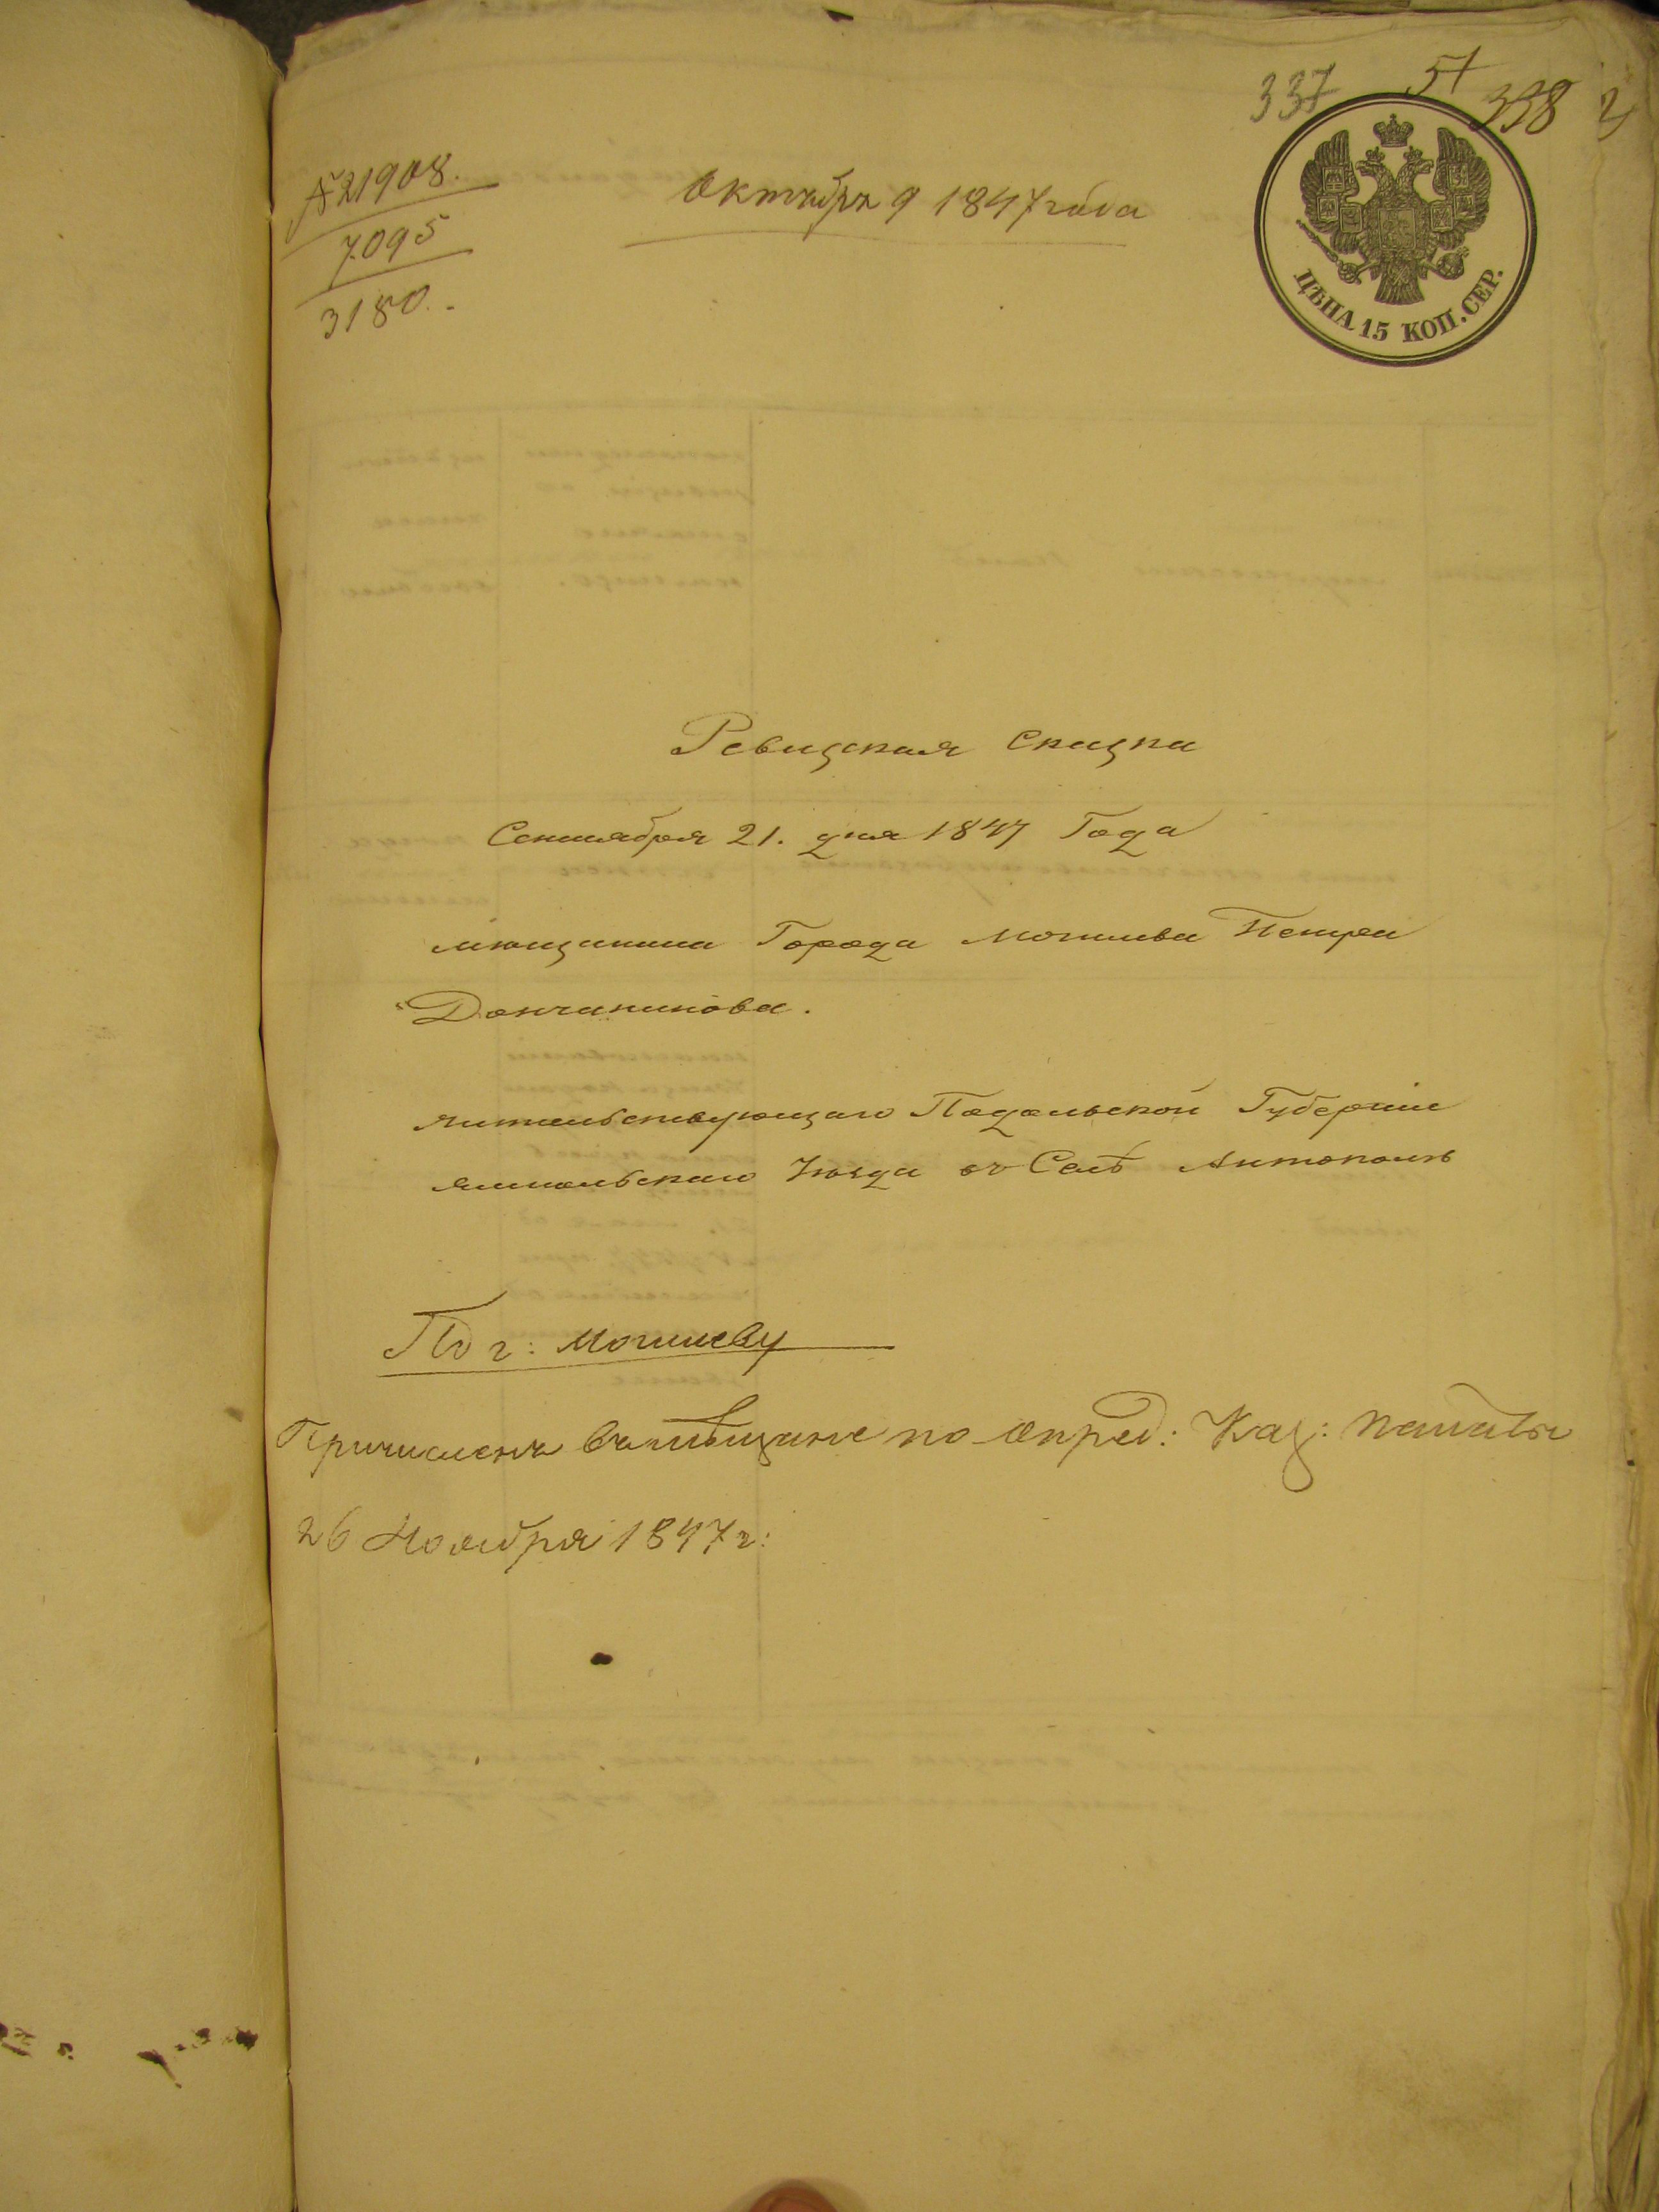 337 51 338
№ 21908.
7095
3180.
Октября 9 1847 года
ЦѢНА 15 КОП. СЕР.
Ревизская Сказка
Сентября 21. дня 1847 Года
мющанина Города Могилева Петра
жительствующаго Подольской Губерніи
Ямпольскаго Уюзда въ Селѣ Антополь
По г: Могилеву
Причисленъ въ мѣщане по опред: Каз: Палаты
26 Ноября 1847 г: